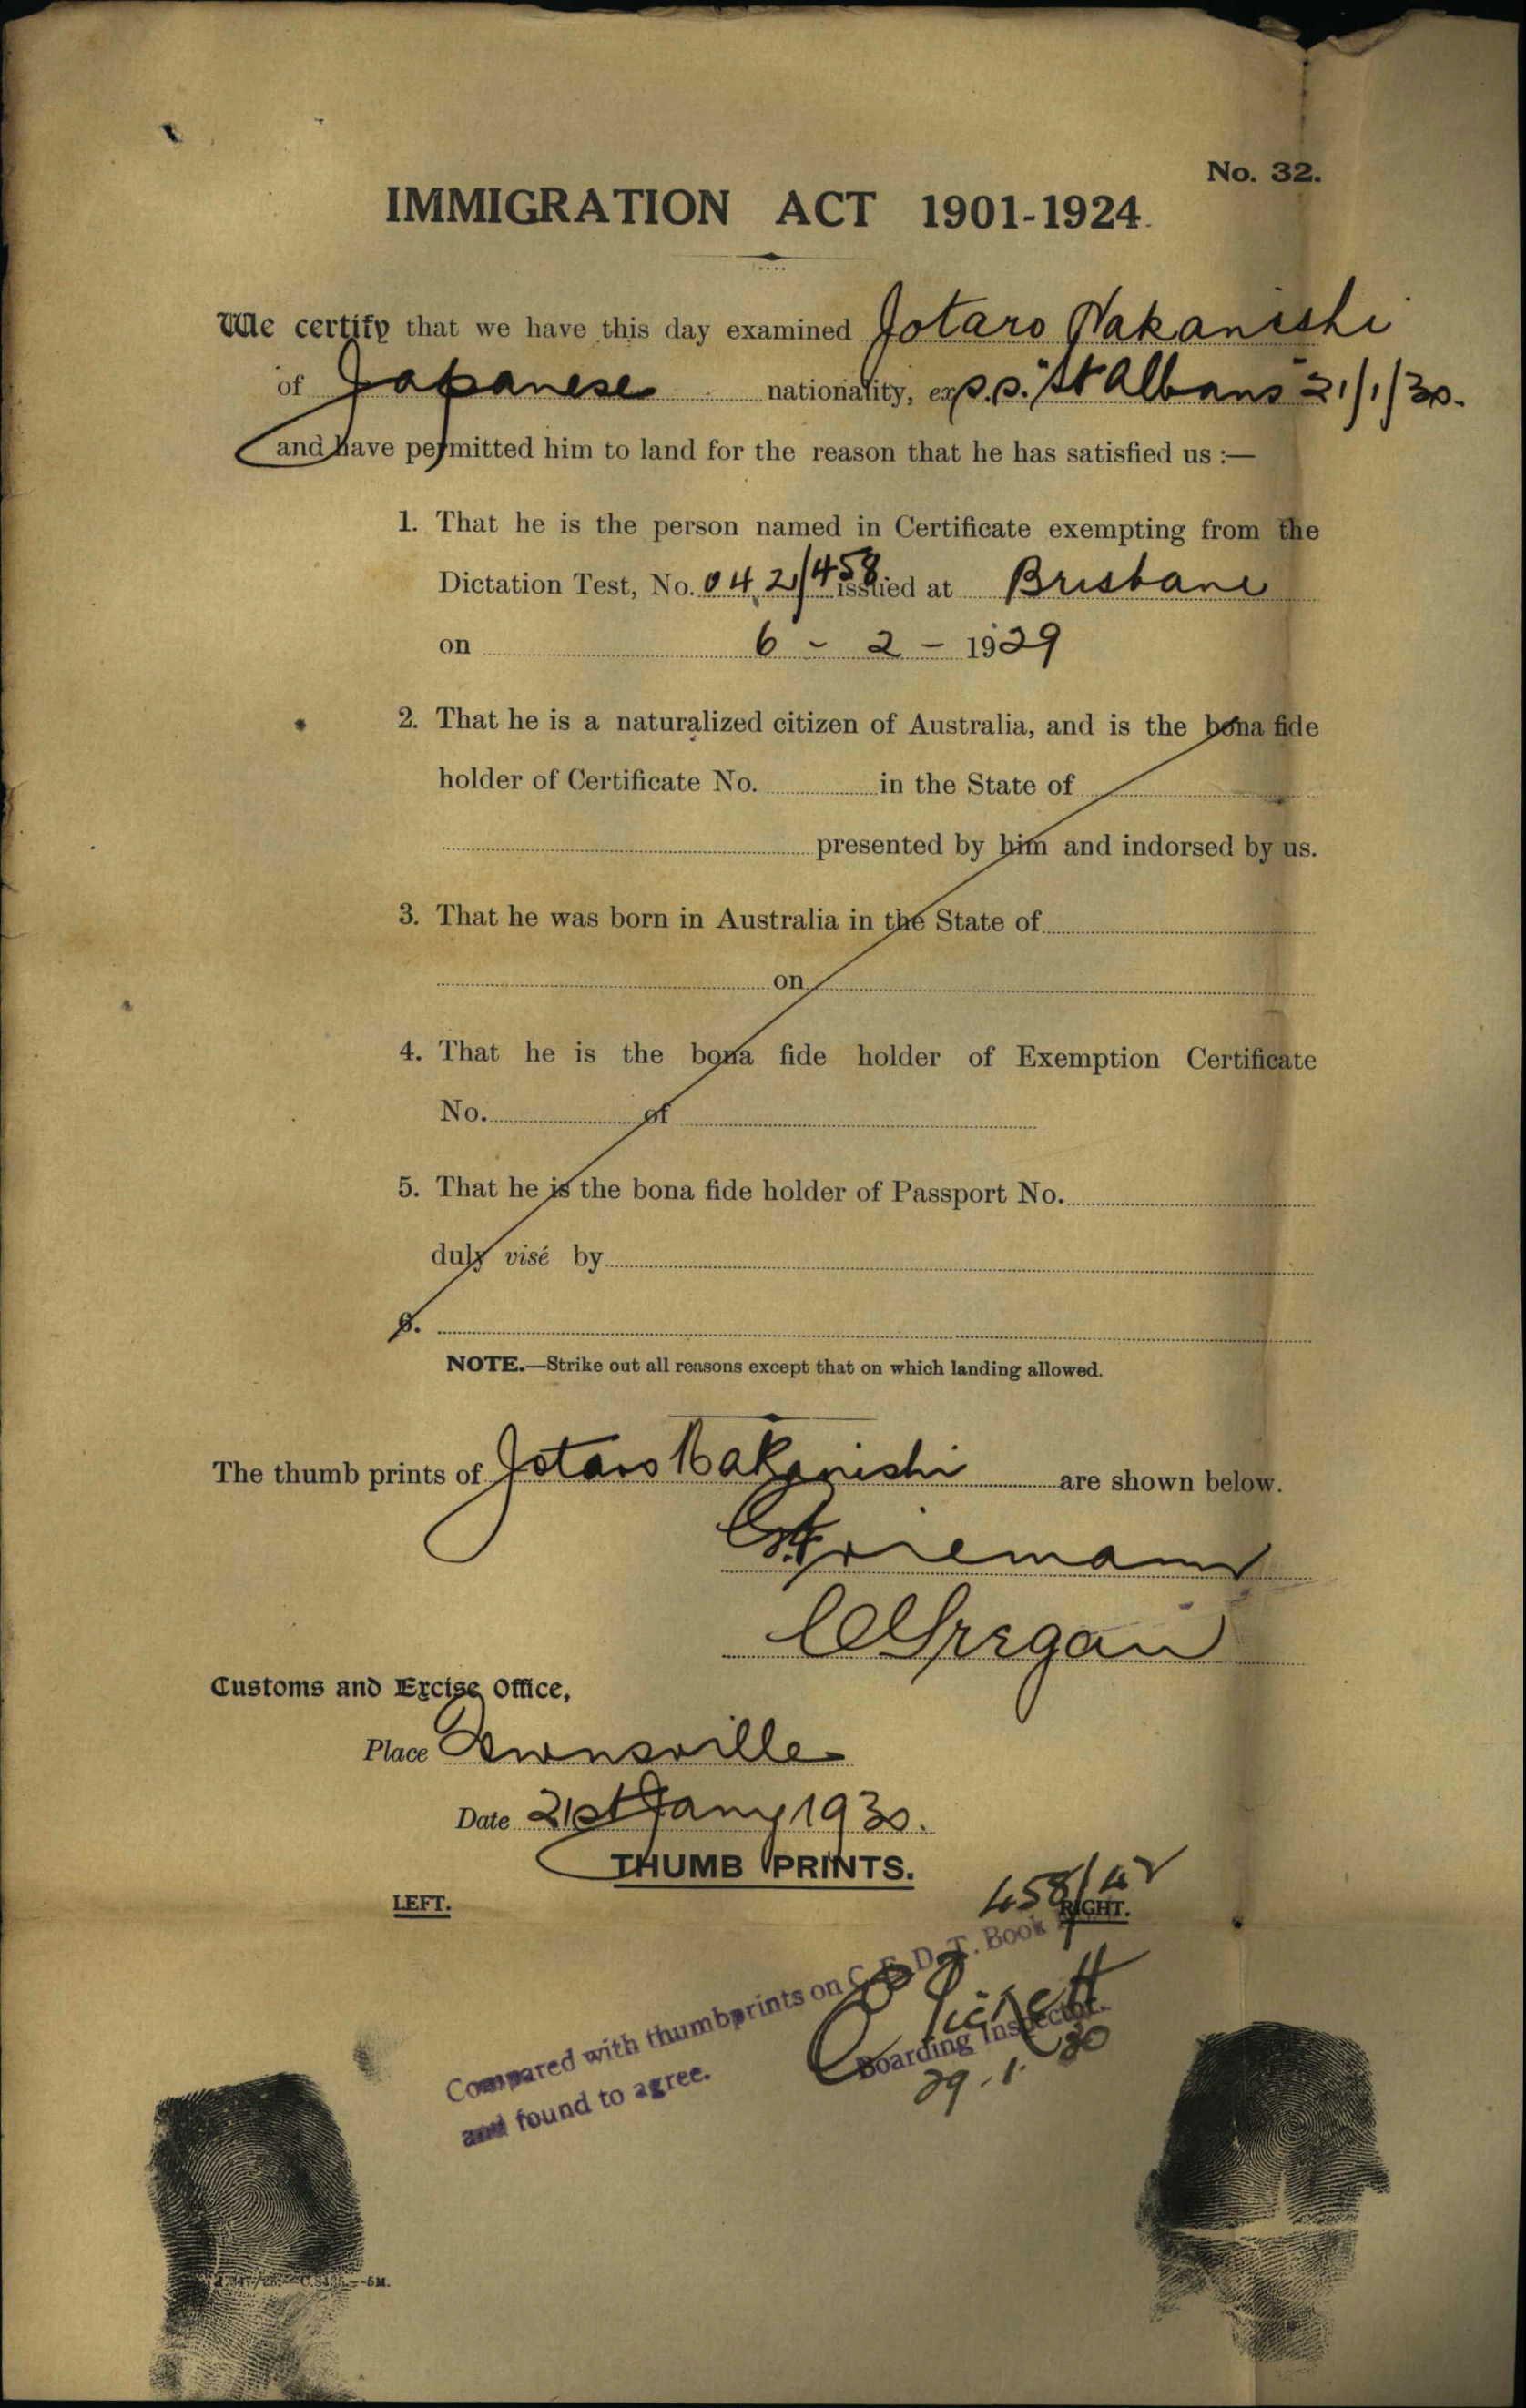 No. 32.
IMMIGRATION ACT 1901-1924.
We certify that we have this day examined Jotaro Nakanishi
of Japanese nationality, ex s.s. "St Albans" 21/1/30.
and have permitted him to land for the reason that he has satisfied us :—
1. That he is the person named in Certificate exempting from the
Dictation Test, No. 042/458 issued at Brisbane
on 6 - 2 - 1929
2. That he is a naturalized citizen of Australia, and is the bona fide
holder of Certificate No. in the State of
presented by him and indorsed by us.
3. That he was born in Australia in the State of
on
4. That he is the bona fide holder of Exemption Certificate
No. of
5. That he is the bona fide holder of Passport No.
duly visé by
6.
NOTE.—Strike out all reasons except that on which landing allowed.
The thumb prints of Jotaro Nakanishi are shown below.
Customs and Excise Office,
Place Townsville
Date 21st Jany 1930.
THUMB PRINTS.
458/42
LEFT. RIGHT.
Compared with thumbprints on C. E. D. T. Book
and found to agree.
Boarding Inspector.
29.1.30